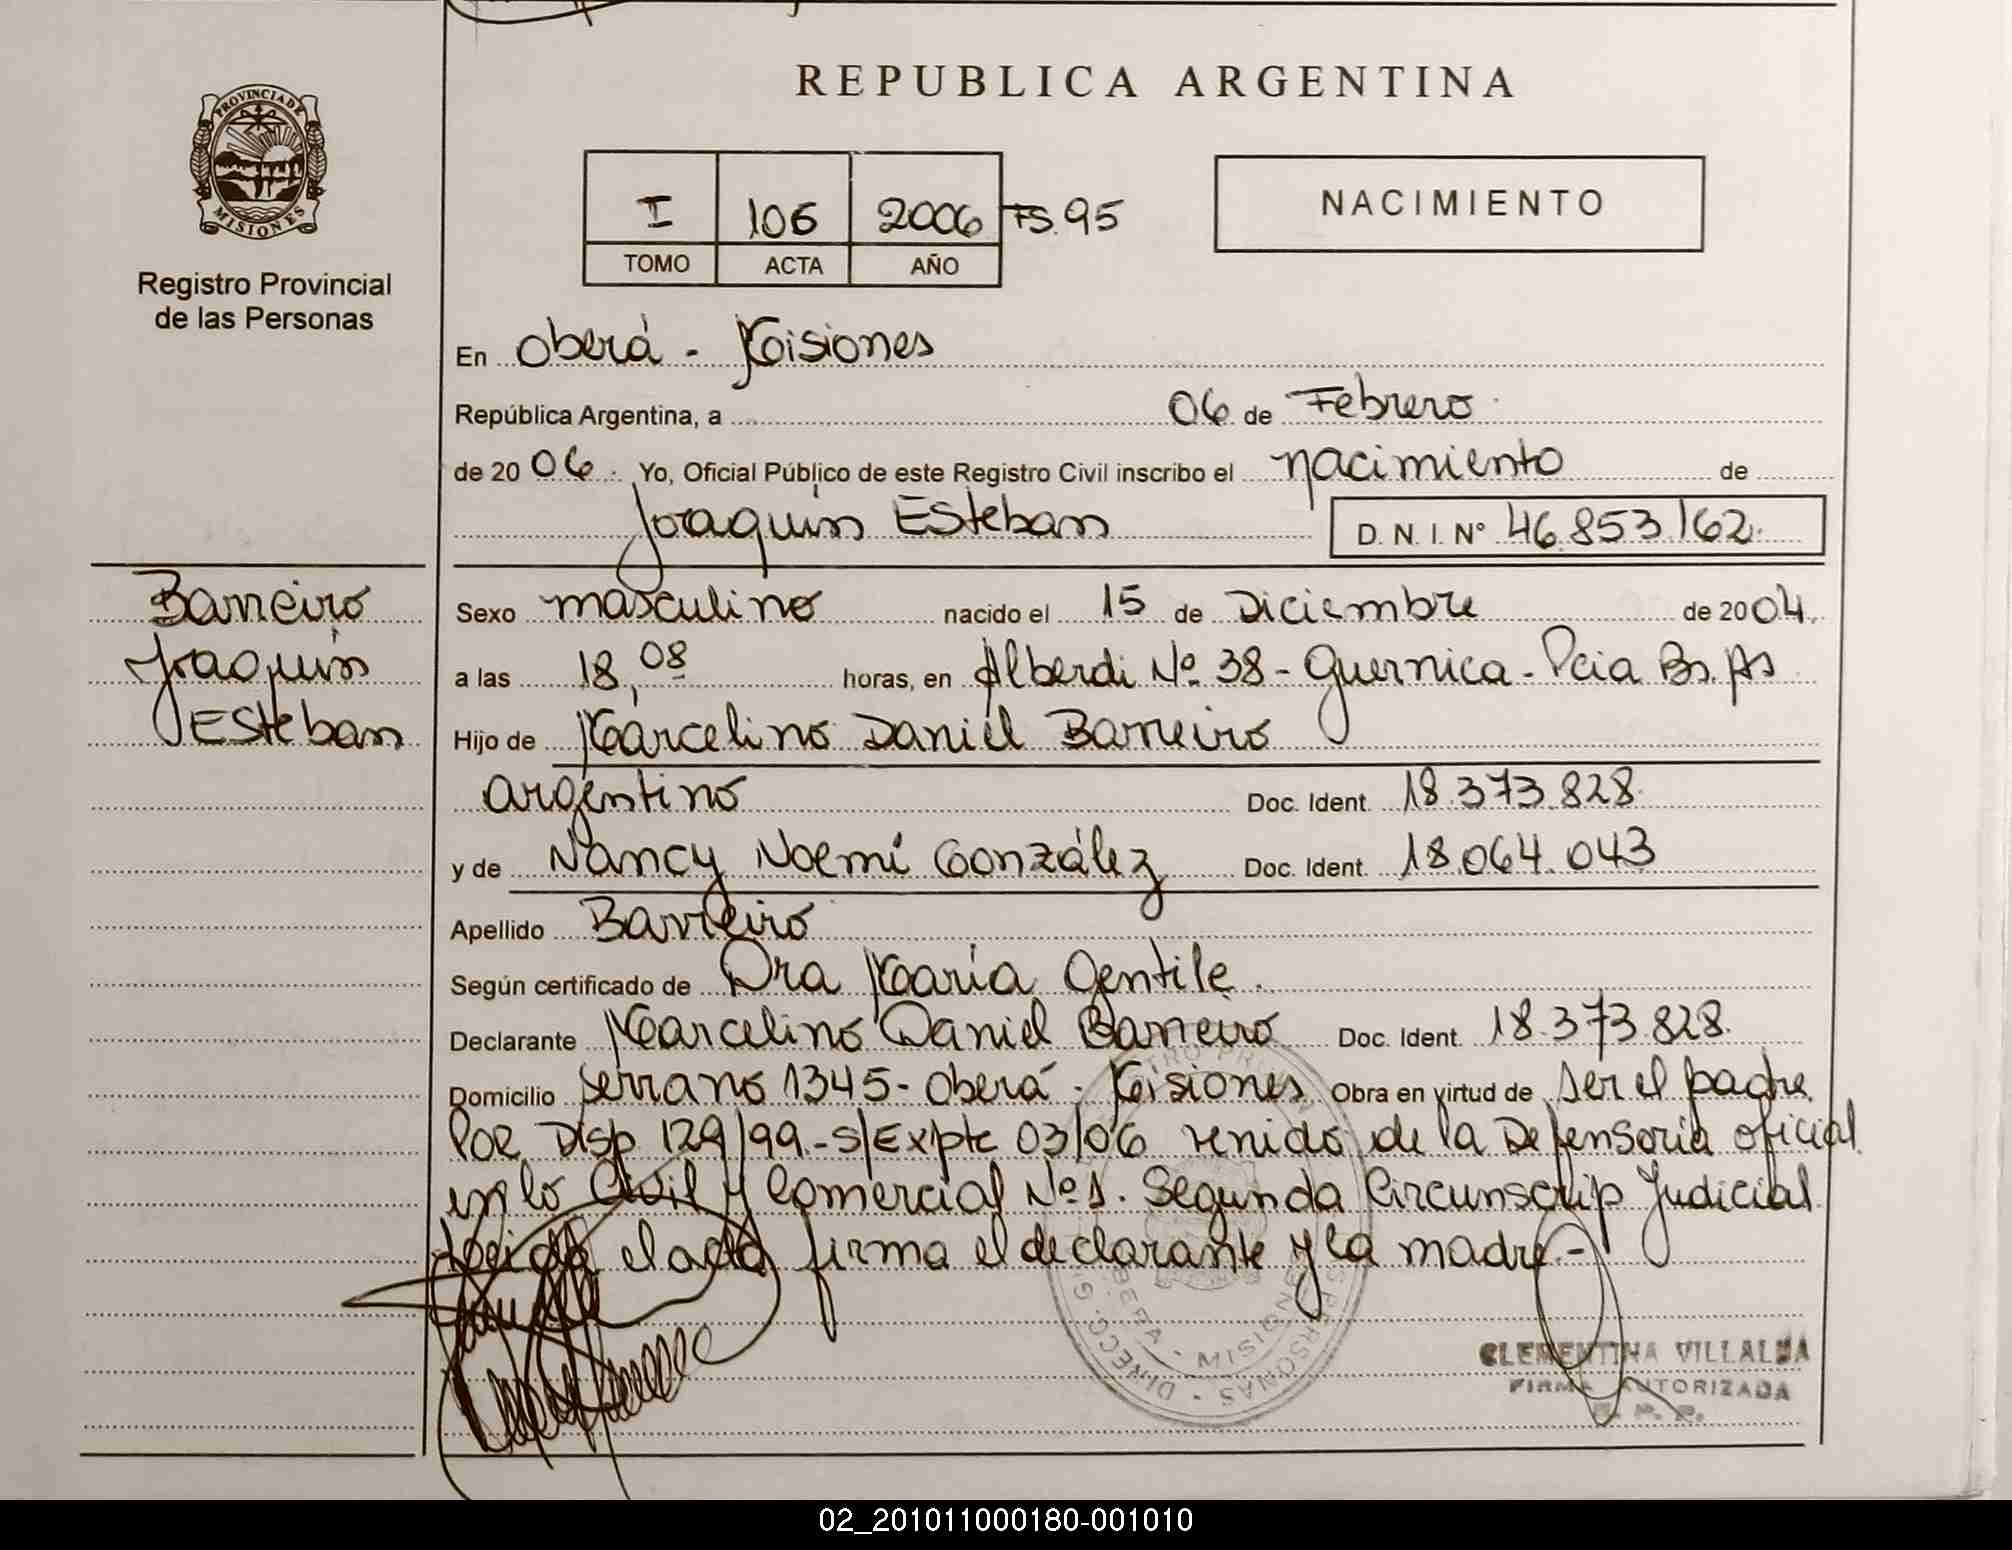 REPUBLICA ARGENTINA
PROVINCIA DE MISIONES
Registro Provincial
de las Personas
I 106 2006 Fs. 95
TOMO ACTA AÑO
NACIMIENTO
En Oberá - Misiones
República Argentina, a 06 de Febrero
de 2006. Yo, Oficial Público de este Registro Civil inscribo el nacimiento de
Joaquín Esteban D. N. I. Nº 46.853.162.
Barreiro
Joaquín
Esteban
Sexo masculino nacido el 15 de Diciembre de 2004.
a las 18,08 horas, en Alberdi Nº 38 - Guernica - Pcia Bs. As
Hijo de Marcelino Daniel Barreiro
argentino Doc. Ident. 18.373.828.
y de Nancy Noemí González Doc. Ident. 18.064.043
Apellido Barreiro
Según certificado de Dra María Gentile.
Declarante Marcelino Daniel Barreiro Doc. Ident. 18.373.828.
Domicilio Serrano 1345 - Oberá - Misiones Obra en virtud de ser el padre
Por Disp 129/99.- S/Expte 03/06 venido de la Defensoría oficial
en lo Civil y Comercial Nº 1. Segunda Circunscrip Judicial
Leida el acta firma el declarante y la madre.-
OBERA - MISIONES
CLEMENTINA VILLALBA
FIRMA AUTORIZADA
R. P. P.
02_201011000180-001010